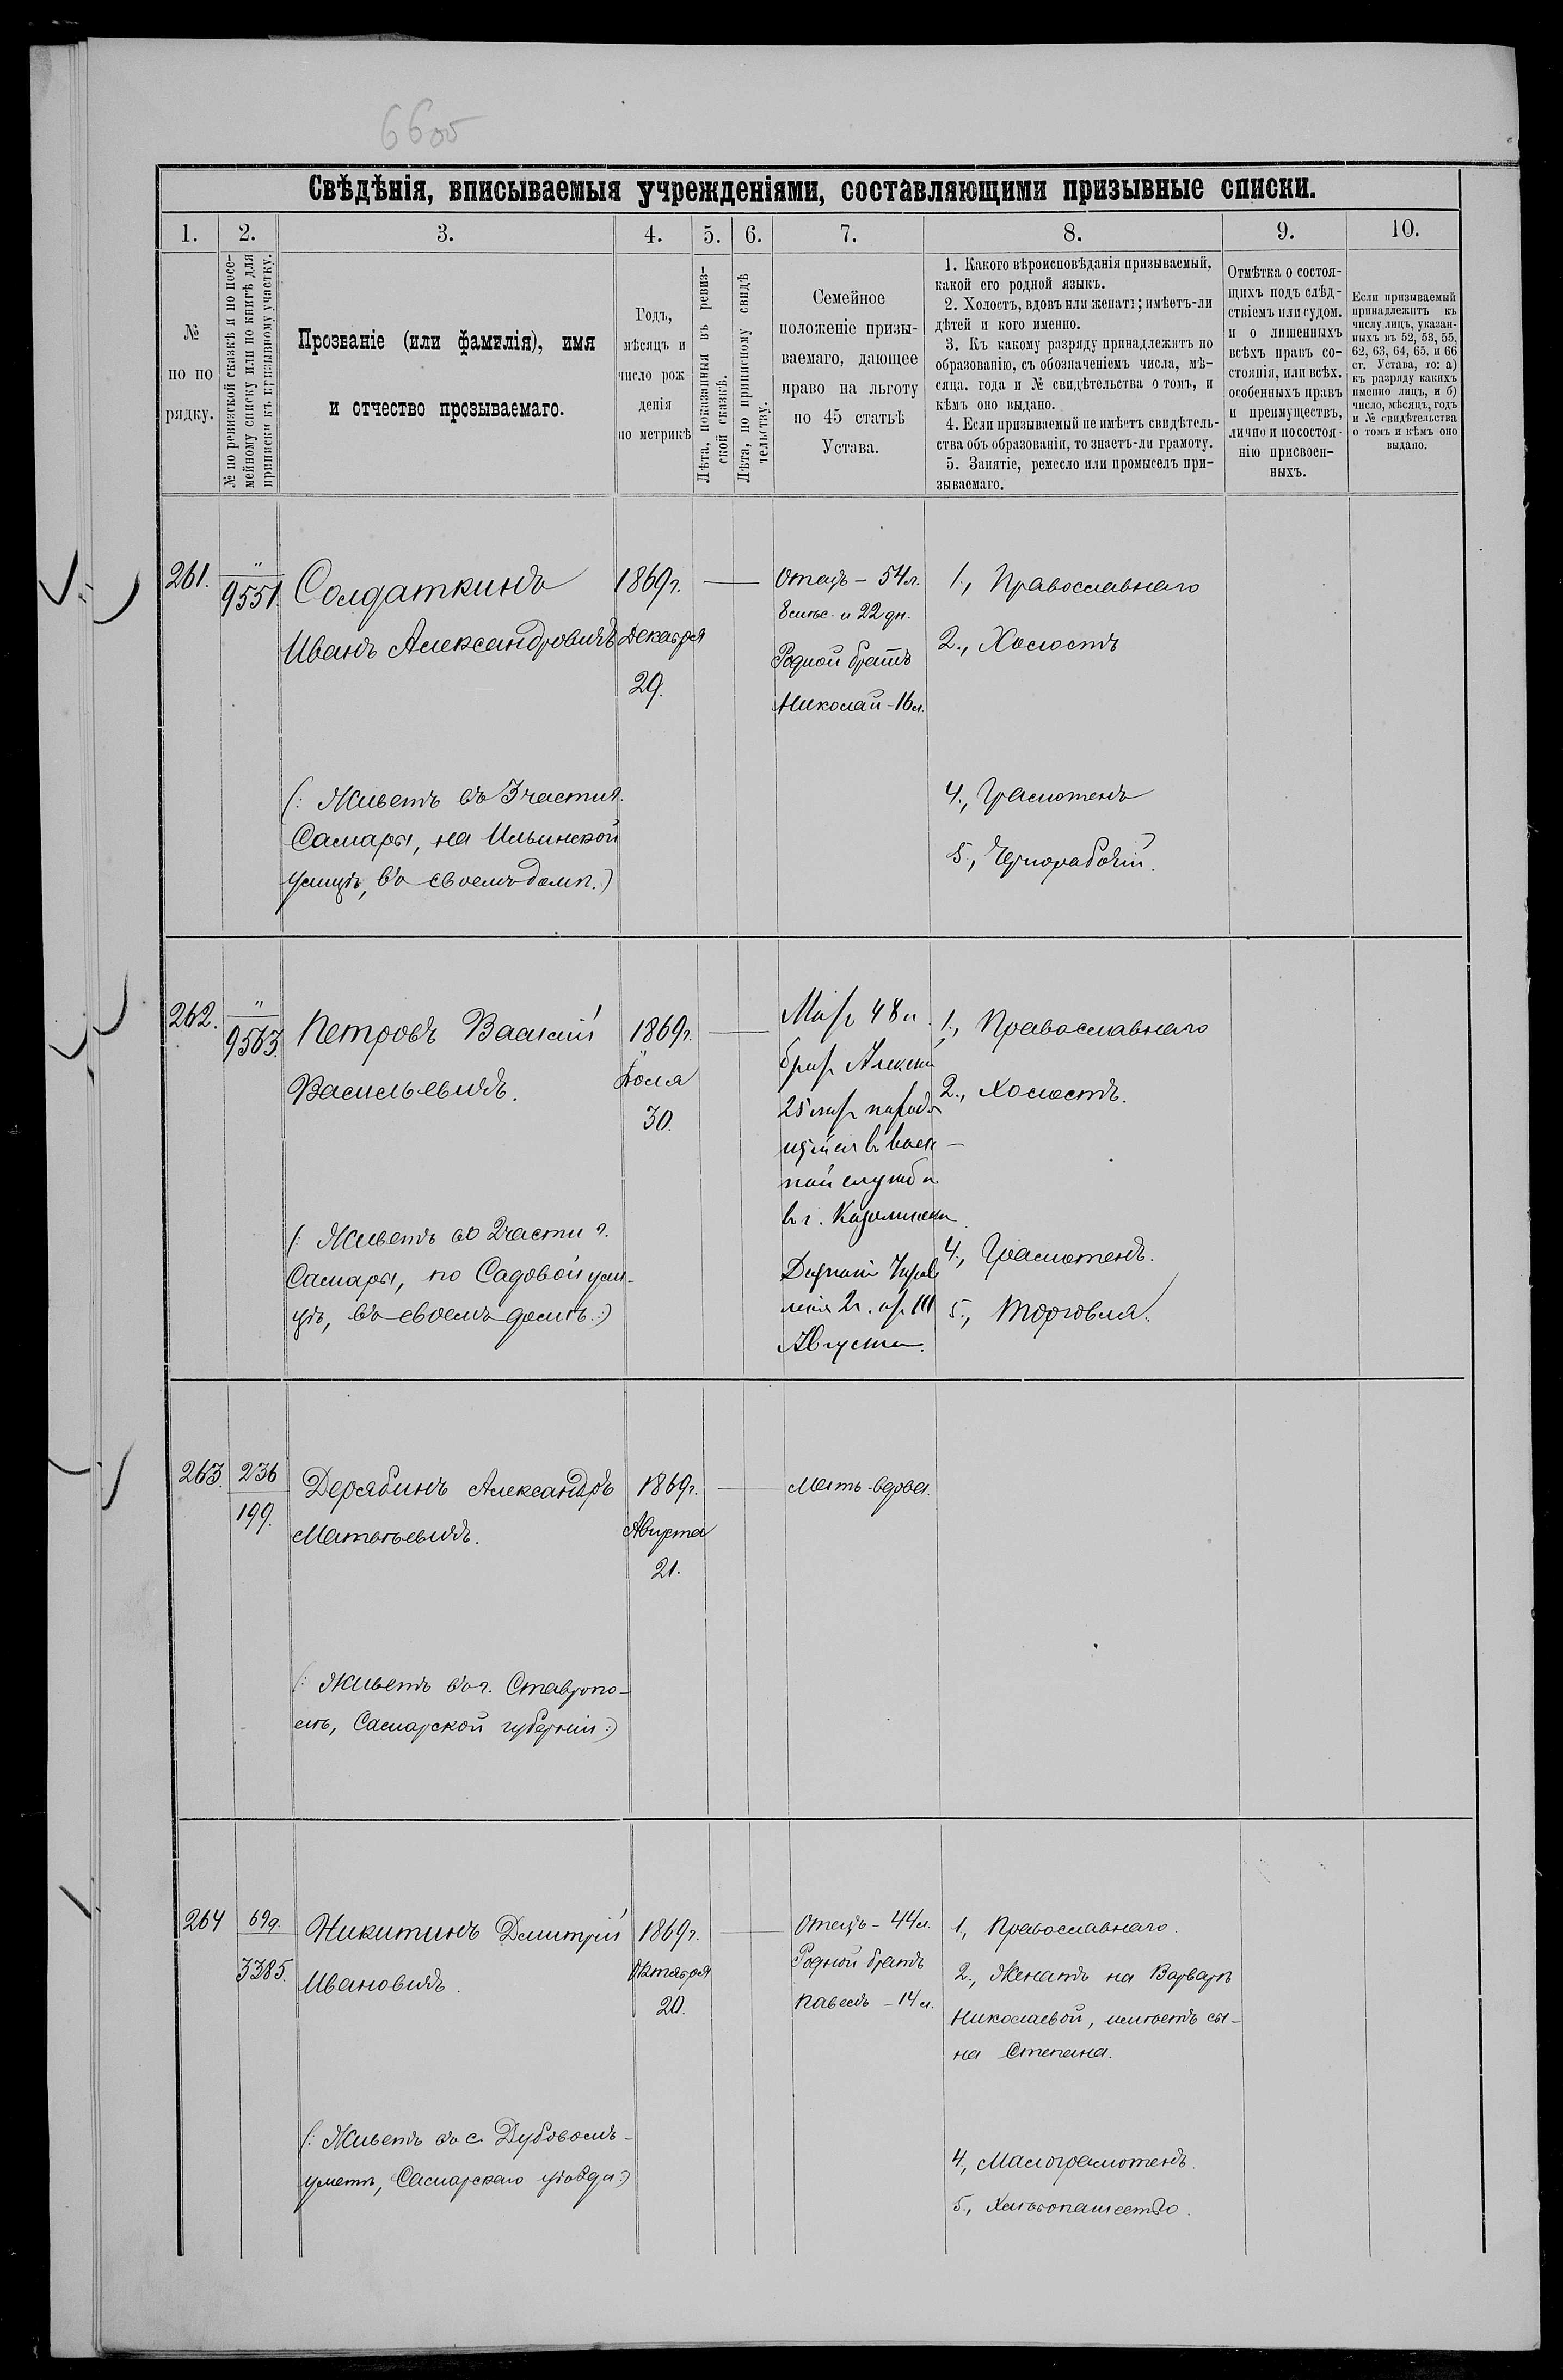 6605
Свѣдѣнія, вписываемыя учрежденіями, составляющими призывные списки.
1.
2.
3.
4.
5.
6.
7.
8.
9.
10.
№
по по
рядку.
№ по ревизской сказкѣ и по посе-
мейному списку или по книгѣ для
приписки къ призывному участку.
Прозваніе (или фамилія), имя
и отчество прозываемаго.
Годъ,
мѣсяцъ и
число рож
денія
по метрикѣ
Лѣта, показанныя въ ревиз-
ской сказкѣ.
Лѣта, по приписному свидѣ
тельству.
Семейное
положеніе призы-
ваемаго, дающее
право на льготу
по 45 статьѣ
Устава.
1. Какого вѣроисповѣданія призываемый,
какой его родной языкъ.
2. Холостъ, вдовъ или женатъ; имѣетъ-ли
дѣтей и кого именно.
3. Къ какому разряду принадлежитъ по
образованію, съ обозначеніемъ числа, мѣ-
сяца, года и № свидѣтельства о томъ, и
кѣмъ оно выдано.
4. Если призываемый не имѣетъ свидѣтель-
ства объ образованіи, то знаетъ-ли грамоту.
5. Занятіе, ремесло или промыселъ при-
зываемаго.
Отмѣтка о состоя-
щихъ подъ слѣд-
ствіемъ или судом.
и о лишенныхъ
всѣхъ правъ со-
стоянія, или всѣх.
особенныхъ правъ
и преимуществъ,
лично и по состоя-
нію присвоен-
ныхъ.
Если призываемый
принадлежитъ къ
числу лицъ, указан-
ныхъ въ 52, 53, 55,
62, 63, 64, 65, и 66
ст. Устава, то: а)
къ разряду какихъ
именно лицъ, и б)
число, мѣсяцъ, годъ
и № свидѣтельства
о томъ и кѣмъ оно
выдано.
261.
"
9551
Солдаткинъ
Иванъ Александровичъ
1869 г.
Декабря
29.
Отецъ - 54 л.
8 мѣс. и 22 дн.
Родной братъ
Николай - 16 л.
1., Православнаго
2., Холостъ
4., Грамотенъ
5., Чернорабочій.
(: Живетъ въ 3 части г.
Самары, на Ильинской
улицѣ, въ своемъ домѣ.)
262.
"
9563.
Петровъ Василій
Васильевичъ.
1869 г.
Іюля
30.
Мать 48 л.
братъ Алексѣй
25 лѣтъ находя
щійся въ воен-
ной службѣ
въ г.
Августа.
1., Православнаго
2., Холостъ.
4., Грамотенъ.
5., Торговля.
(: Живетъ во 2 части г.
Самары, по Садовой ули-
цѣ, въ своемъ домѣ.:)
263.
236
199.
Дерябинъ Александръ
Матвѣевичъ.
1869 г.
Августа
21.
Мать-вдова.
(: Живетъ въ г. Ставропо-
лѣ, Самарской губерніи:)
264
699.
3385.
Никитинъ Дмитрій
Ивановичъ.
1869 г.
Октября
20.
Отецъ - 44 л.
Родной братъ
Павелъ - 14 л.
1, Православнаго.
2., Женатъ на Варварѣ
Николаевой, имѣетъ сы-
на Степана.
4, Малограмотенъ.
5., Хлѣбопашество.
(: Живетъ въ с Дубовомъ-
уметѣ, Самарскаго уѣзда:)